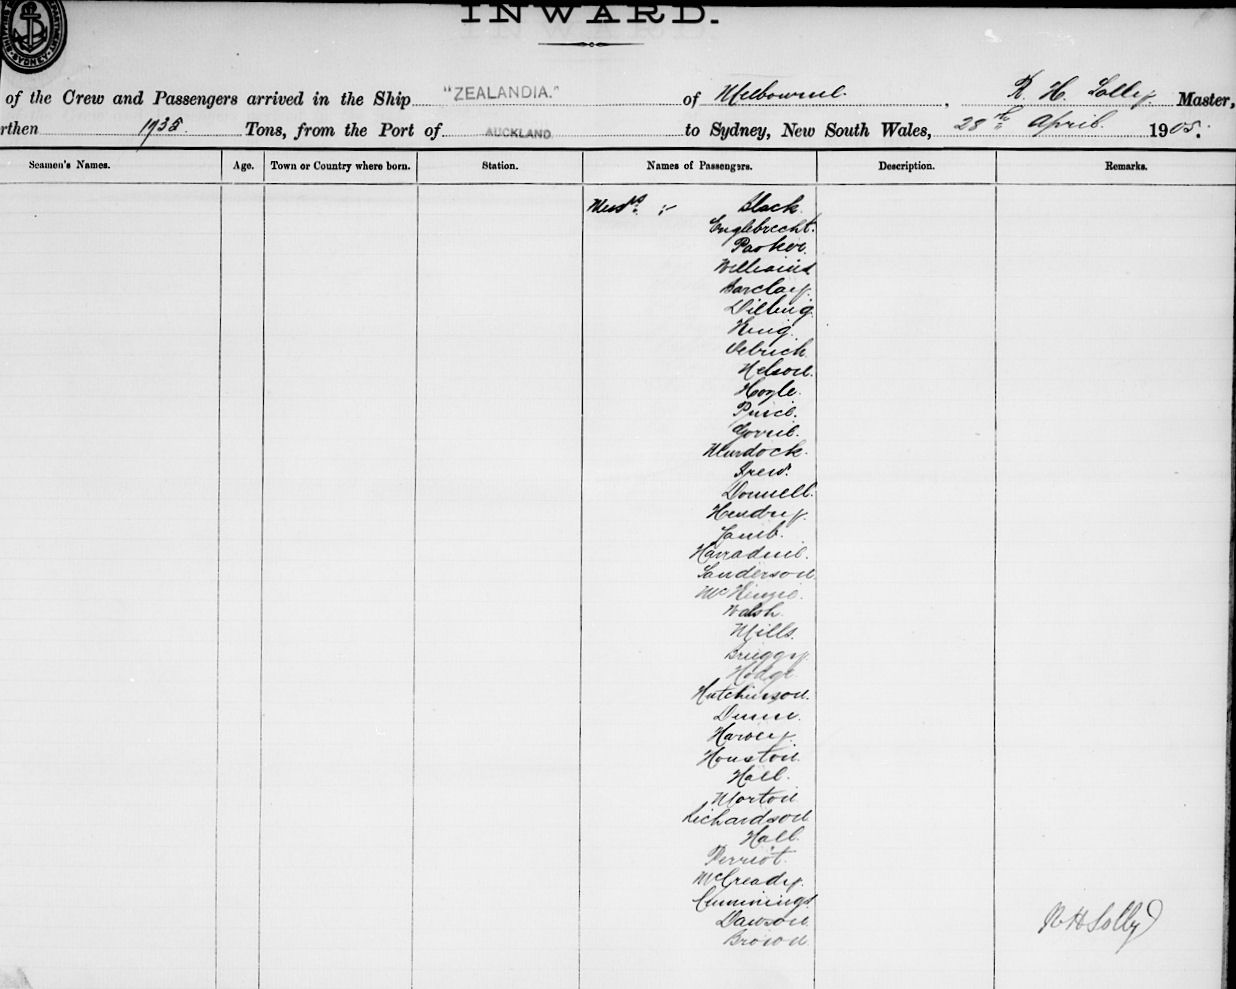 INWARD.
SYDNEY
of the Crew and Passengers arrived in the Ship "ZEALANDIA." of Melbourne, R. H. Lolly Master,
rthen 1935 Tons, from the Port of AUCKLAND to Sydney, New South Wales, 28th April. 1905.
Seamen's Names. Age. Town or Country where born. Station. Names of Passengers. Description. Remarks.
Messrs :- Black.
Englebrecht.
Parker.
Williams
Barclay.
Dilling.
King.
Nelson.
Hoyle.
Price.
Murdock.
Drew.
Donnell.
Hendry.
Lamb.
Harradine.
Sanderson
McKenzie.
Walsh.
Mills.
Briggs.
Hodge
Hutchinson.
Dunne.
Harvey.
Houston.
Hall.
Morton
Richardson
Hall.
Perriot.
McCready.
Cummings
Dawson.
Brown.
R H Lolly